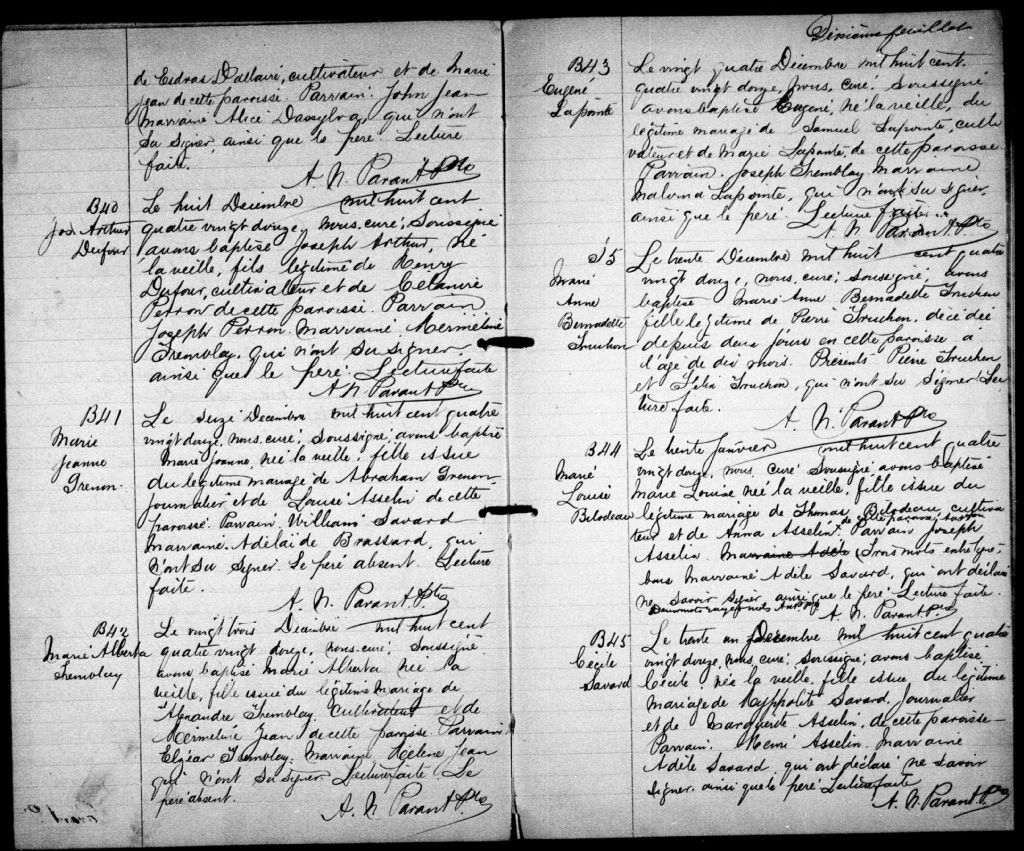 de Esdras Dallaire, cultivateur et de Marie
Jean de cette paroisse. Parrain. John Jean
Marraine Alice Dassylva, qui n'ont
Su signer, ainsi que le père Lecture
faite.
A. N. Parant Ptre
B40
Jos. Arthur
Dufour
Le huit Décembre mil huit cent
quatre vingt douze, nous. curé, Soussigné
avons baptisé Joseph Arthur, né
la veille, fils légitime de Henry
Dufour, cultivateur et de Mélanire
Perron de cette paroisse. Parrain
Joseph Perron. Marraine. Merméline
Tremblay, qui n'ont su signer.
ainsi que le père. Lecture faite
A N Parant Ptre
B41
Marie
Jeanne
Grenon.
Le seize Decembre mil huit cent quatre
vingt douze, nous. curé, Soussigné, avons baptisé
Marie Jeanne, née la veille, fille issue
du légitime mariage de Abraham Grenon
journalier et de Louise Asselin de cette
paroisse. Parrain. William Savard
Marraine. Adélaïde Brassard, qui
n'ont su signer. Le père absent. Lecture
faite.
A. N. Parant. Ptre
B42
Marie Alberta
Tremblay
Le vingt trois Décembre mil huit cent
quatre vingt douze, nous. curé, Soussigné
avons baptisé Marie Alberta née la
veille, fille issue du légitime mariage de
Alexandre Tremblay. Cultivateur et de
Hermeline Jean de cette paroisse Parrain
Elzéar Tremblay. Marraine Hélène Jean
qui n'ont su signer Lecture faite Le
père absent.
A. N. Parant Ptre
Dixième feuillet
B43
Eugené
Lapointe
Le vingt quatre Décembre mil huit cent.
quatre vingt douze, nous, curé, Soussigné
avons baptisé Eugené, né la veille, du
légitime mariage de Samuel Lapointe, culti
vateur et de Marie Lapointe, de cette paroisse
Parrain. Joseph Tremblay Marraine
Malvina Lapointe, qui n'ont su signer
ainsi que le père. Lecture faite.
A. N. Parant. Ptre
S5
Marie
Anne
Bernadette
Truchon
Le trente Décembre mil huit cent quatre
vingt douze, nous, curé, soussigné avons
baptisé Marie Anne Bernadette Truchon
fille légitime de Pierre Truchon, décédée
depuis deux jours en cette paroisse a
l'age de dix mois. Présents Pierre Truchon
et Félix Truchon, qui n'ont su signer Lec
ture faite.
A. N. Parant Ptre
B44
Marie
Louise
Bilodeau
Le trente Janvier mil huit cent quatre
vingt douze, nous, curé Soussigné avons baptisé
Marie Louise née la veille, fille issue du
légitime mariage de Thomas Bilodeau, cultiva
teur et de Anna Asselin x de cette paroisse
Parrain Joseph
Asselin. Marraine Adèle (Trois mots entre
Marraine Adèle Savard, qui ont déclaré
ne savoir signer ainsi que le père Lecture faite.
A. N. Parant. Ptre
B45
Cécile
Savard
Le trente un Décembre mil huit cent quatre
vingt douze, nous, curé, soussigné, avons baptisé
Cécile, née la veille, fille issue du légitime
mariage de Hyppolite Savard. Journalier
et de Marguerite Asselin, de cette paroisse
Parrain. Henri Asselin. Marraine
Adèle Savard, qui ont déclaré ne savoir
signer. ainsi que le père Lecture faite
A. N. Parant. Ptre